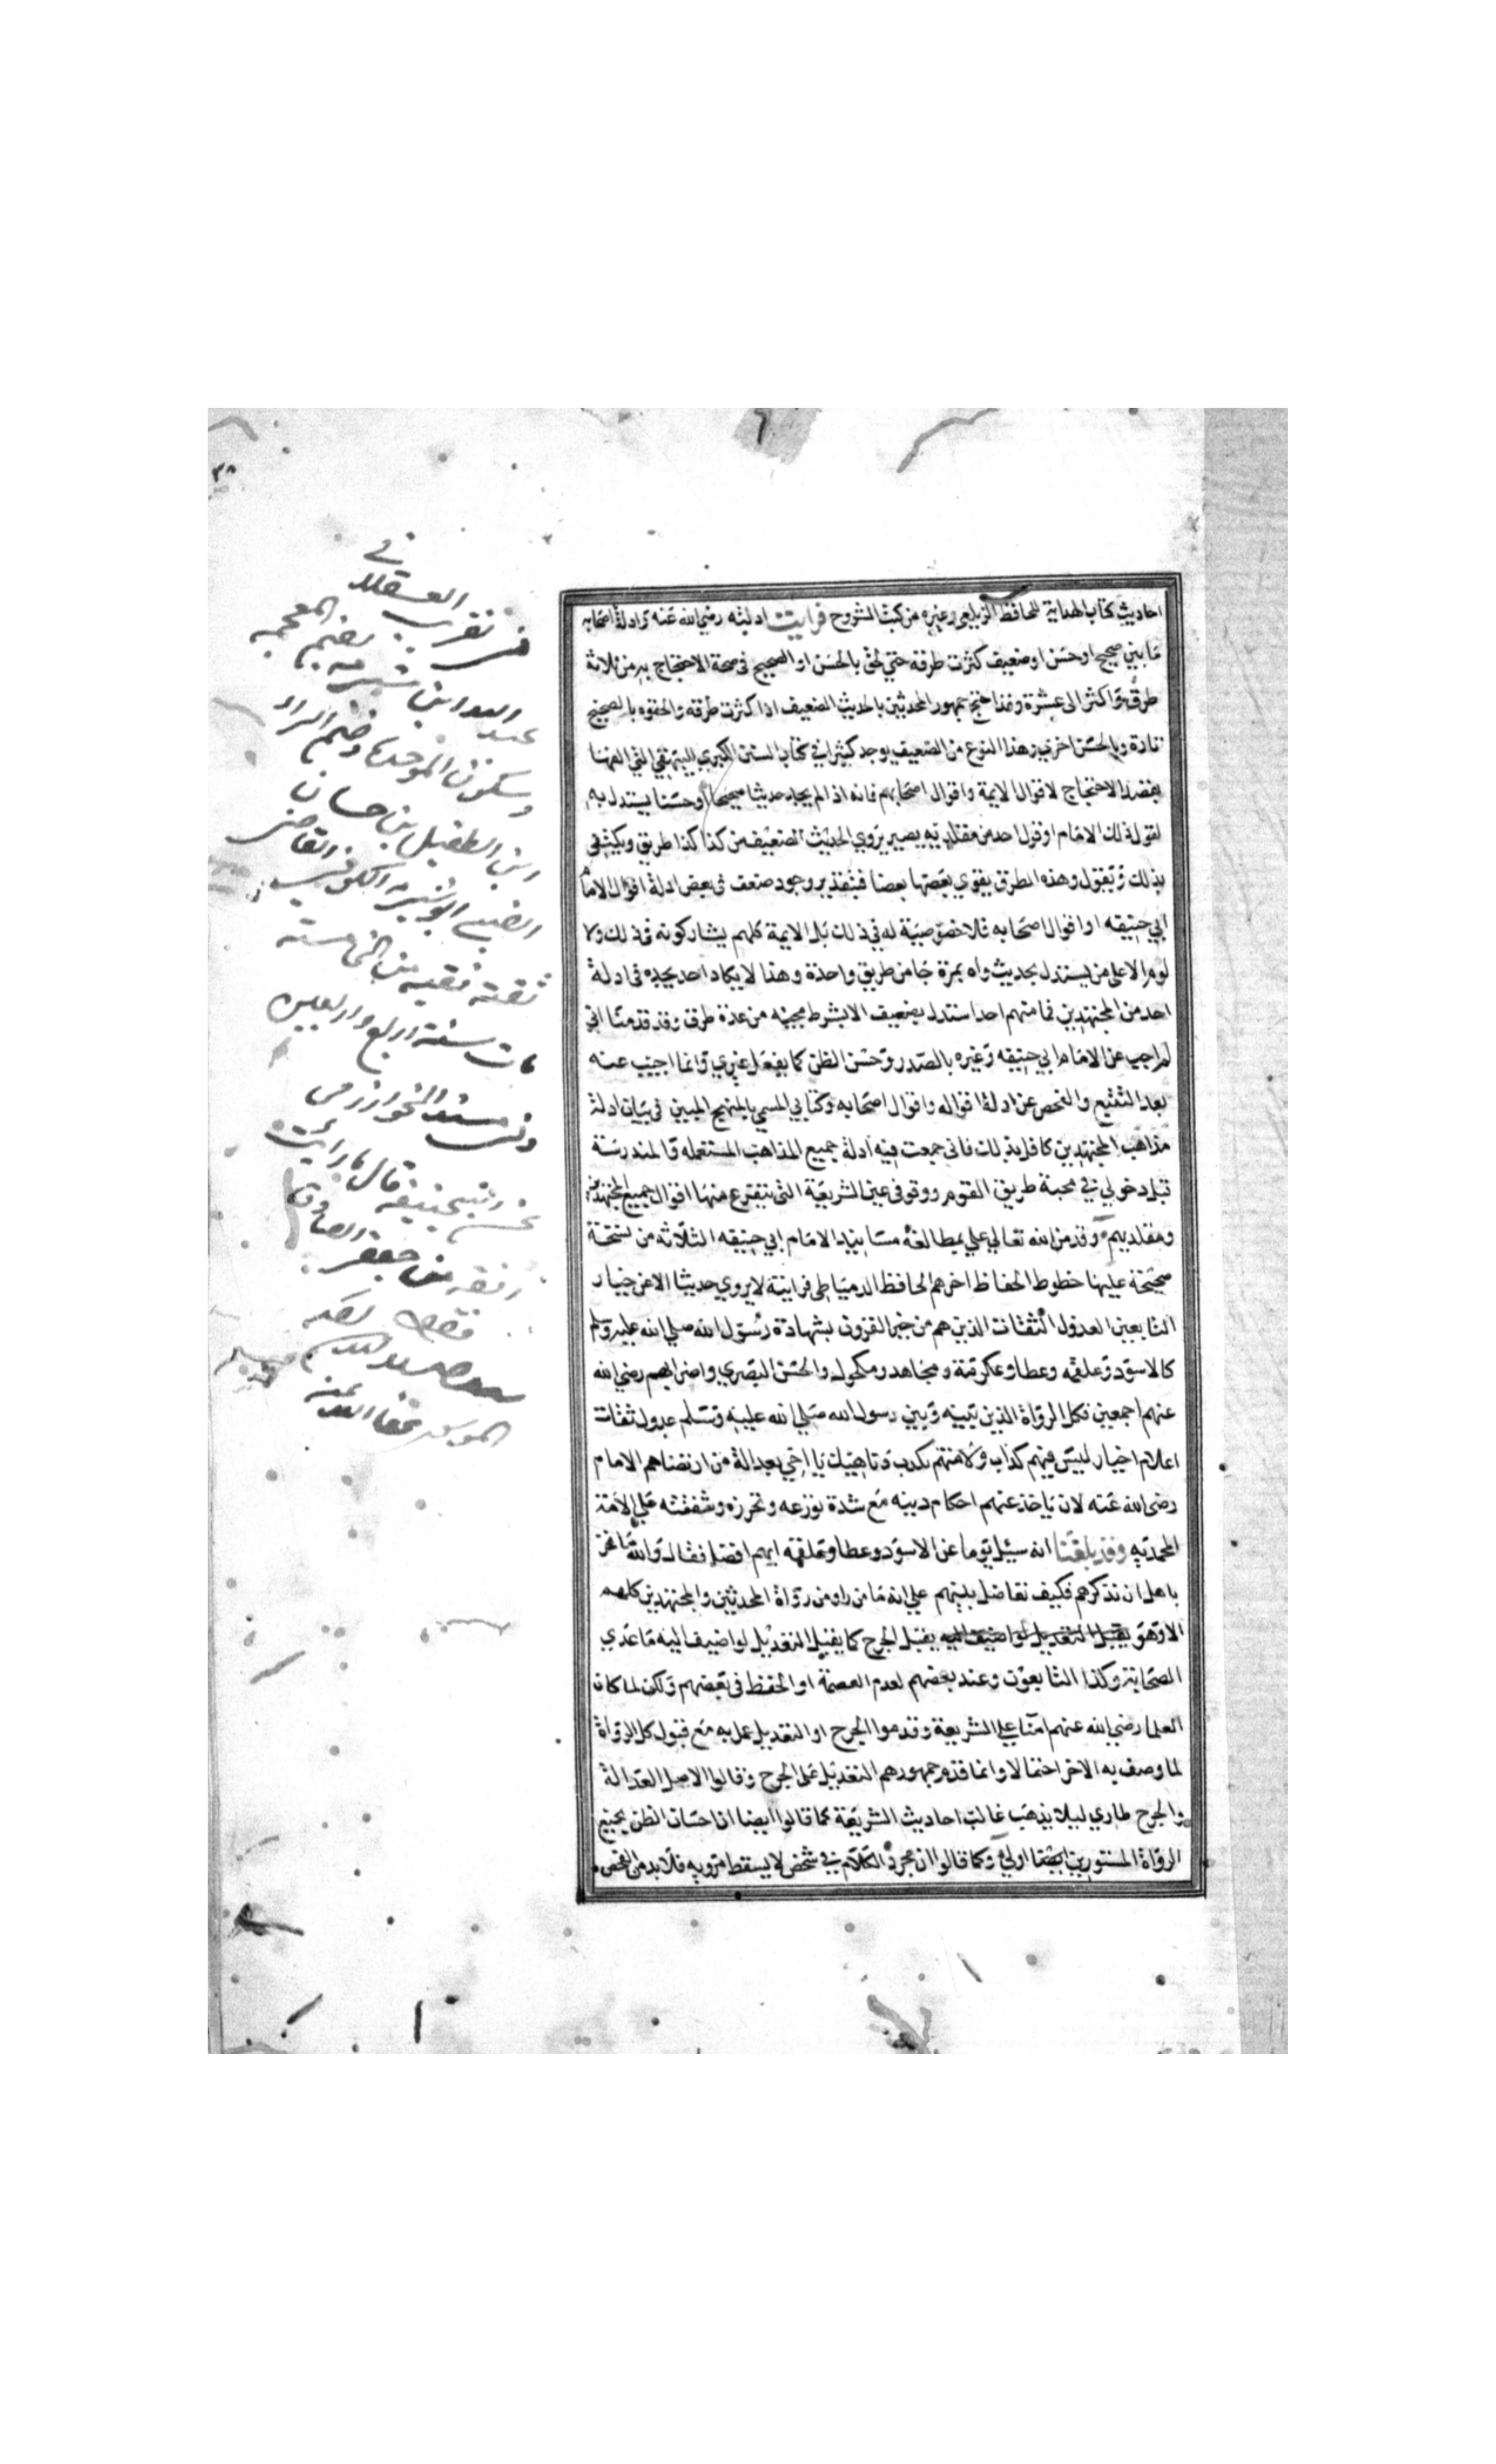 احاديث كتاب الهداية للحافظ الزيلعي وغيره من كتب الشروح فرايت ادلته رضي الله عنه وادلة اصحابه
ما بين صحيح او حسن او ضعيف كثرت طرقه حتي لحق بالحسن او الصحيح في صحة الاحتجاج به من ثلاثة
طرق واكثر الى عشرة وقد احتج جمهور المحدثين بالحديث الضعيف اذا كثرت طرقه والحقوه بالصحيح
تارة وبالحسن اخري وهذا النوع من الضعيف يوجد كثيرا في كتاب السنن الكبري للبيهقي التي الفها
بقصد الاحتجاج لاقوال الايمة واقوال اصحابهم فانه اذا لم يجد حديثا صحيحا او حسنا يستدل به
لقول ذلك الامام او قول احد من مقلديه يصير يروي الحديث الضعيف من كذا كذا طريق ويكتفي
بذلك ويقول وهذه الطرق يقوي بعضها بعضا فبتقدير وجود ضعف في بعض ادلة اقوال الامام
ابي حنيفه او اقوال اصحابه فلا خصوصية له في ذلك بل الايمة كلهم يشاركونه في ذلك ولا
لوم الا على من يستدل بحديث واه بمرة جا من طريق واحدة وهذا لا يكاد احد يجده في ادلة
احد من المجتهدين فما منهم احد استدل بضعيف الا بشرط مجيئه من عدة طرق وقد قدمنا اني
لم اجب عن الامام ابي حنيفه وغيره بالصدر وحسن الظن كما يفعل غيري وانما اجيب عنه
بعد التتبع والفحص عن ادلة اقواله واقوال اصحابه وكتابي المسمي بالمنهج المبين في بيان ادلة
مذاهب المجتهدين كافل بذلك فاني جمعت فيه ادلة جميع المذاهب المستعمله والمندرسة
قبل دخولي في محبة طريق القوم ووقوفي عين الشريعة التي يتفرع منها اقوال جميع المجتهدين
ومقلديهم وقد من الله تعالي علي بمطالعة مسانيد الامام ابي حنيفه الثلاثه من نسخة
صحيحة عليها خطوط الحفاظ اخرهم الحافظ الدمياطي فرايته لا يروي حديثا الا عن خيار
التابعين العدول الثقات الذين هم من خير القرون بشهادة رسول الله صلي الله عليه وسلم
كالاسود وعلقمه وعطا وعكرمة ومجاهد ومكحول والحسن البصري واضرابهم رضي الله
عنهم اجمعين فكل الرواة الذين بينه وبين رسول الله صلي الله عليه وسلم عدول ثقات
اعلام اخيار ليس فيهم كذاب ولا متهم بكذب وناهيك يا اخي بعدالة من ارتضاهم الامام
رضي الله عنه لان ياخذ عنهم احكام دينه مع شدة تورعه وتحرزه وشفقته علي الامة
المحمديه وقد بلغنا انه سيل يوما عن الاسود وعطا وعلقمه ايهم افضل فقال والله ما نحن
باهل ان نذكرهم فكيف نفاضل بينهم علي انه ما من راو من رواة المحدثين والمجتهدين كلهم
الا وهو يقبل التعديل لو اضيف اليه يقبل الجرح كما يقبل التعديل لو اضيف اليه ما عدي
الصحابة وكذا التابعون وعند بعضهم لعدم العصمة او الحفظ في بعضهم ولكن لما كان
العلما رضي الله عنهم امنا علي الشريعة وقدموا الجرح او التعديل عمل به مع قبول كل الرواة
لما وصف به الاخر احتمالا وانما قدم جمهورهم التعديل على الجرح وقالوا الاصل العدالة
والجرح طاري ليلا يذهب غالب احاديث الشريعة كما قالوا ايضا ان احسان الظن بجميع
الرواة المستورين ايضا اولي وكما قالوا ان مجرد الكلام في شخص لا يسقط مرويه فلا بد من الفحص
في تقريب العسقلاني
عبد الله ابن شبرمه بضم المعجمه
وسكون الموحدة وضم الراء
ابن الطفيل بن حسان
الضبي ابو شبرمه الكوفي القاضي
ثقة فقيه من الخامسة
مات سنة اربع واربعين
وفي مسند الخوارزمي
عن ابي حنيفة قال ما رأيت
افقه من جعفر الصادق